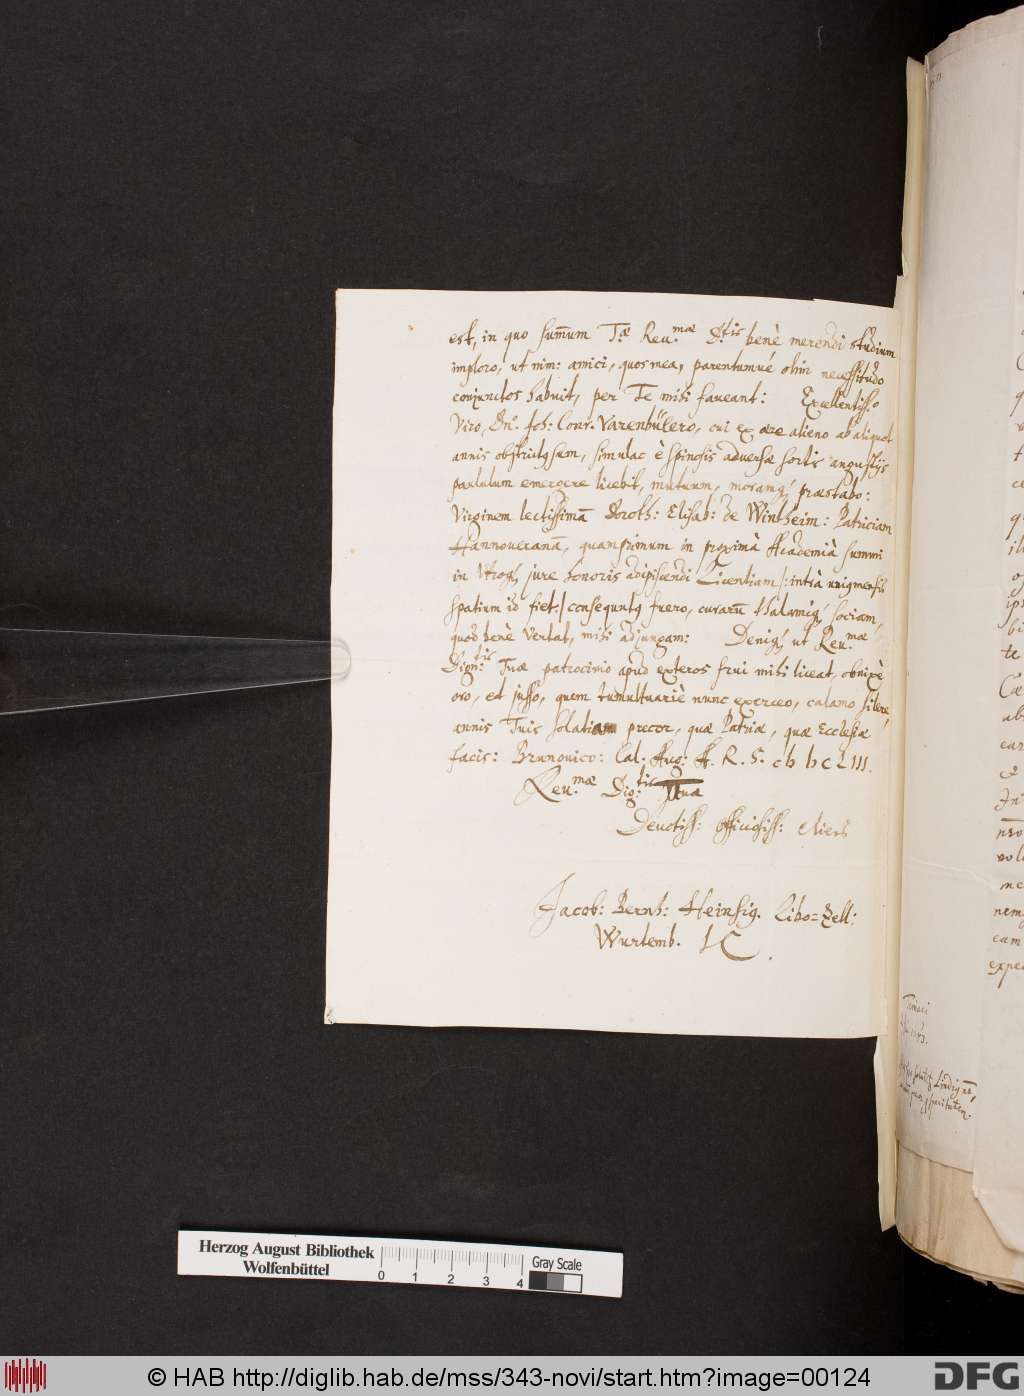 est, in quo sum̄um T.æ Reu.mæ D.tis benè merendi studium
imploro, ut nim: amici, quos mea, parentumué olim necessitudo
conjunctos habuit, per Te mihi faveant: Excellentiss.o
Viro, Dn.o Joh: Conr. Varenbülero, cui ex ære alieno ab aliquot
annis obstrictq sum, simulac è spinosis adversæ sortis angustijs
paululum emergere licebit, mutuum, moramq́ præstabo:
Virginem lectissimā Doroth: Elisab: de Wintheim: Patriciam
Hannoueranā, quamprimum in proximâ Academiâ summi
in Utroq́ jure honoris adipiscendi Licentiam /: intrà unigmensis
spatium id fiet:/ consequutq fuero, curarū thalamiq́ sociam,
quod benè vertat, mihi adjungam: Deniq́ ut Reu.mæ
Dign:tis Tuæ patrocinio apud exteros frui mihi liceat, obnixè
oro, et jusso, quem tumultuariè nunc exerceo, calamo silere,
annis Tuis solatiam precor, quæ Patriæ, quæ Ecclesiæ
facis: Brunouico: Cal. Aug: A. R. S. cIↄ Iↄ c LIII.
Reu.mæ Dig:tis Tuæ
Deuotiss: officiosiss: cliens
Jacob: Bernh: Heinsiq. Libo=Zell:
Wurtemb.
Herzog August Bibliothek
Wolfenbüttel
0 1 2 3 4
Gray Scale
© HAB http://diglib.hab.de/mss/343-novi/start.htm?image=00124
DFG